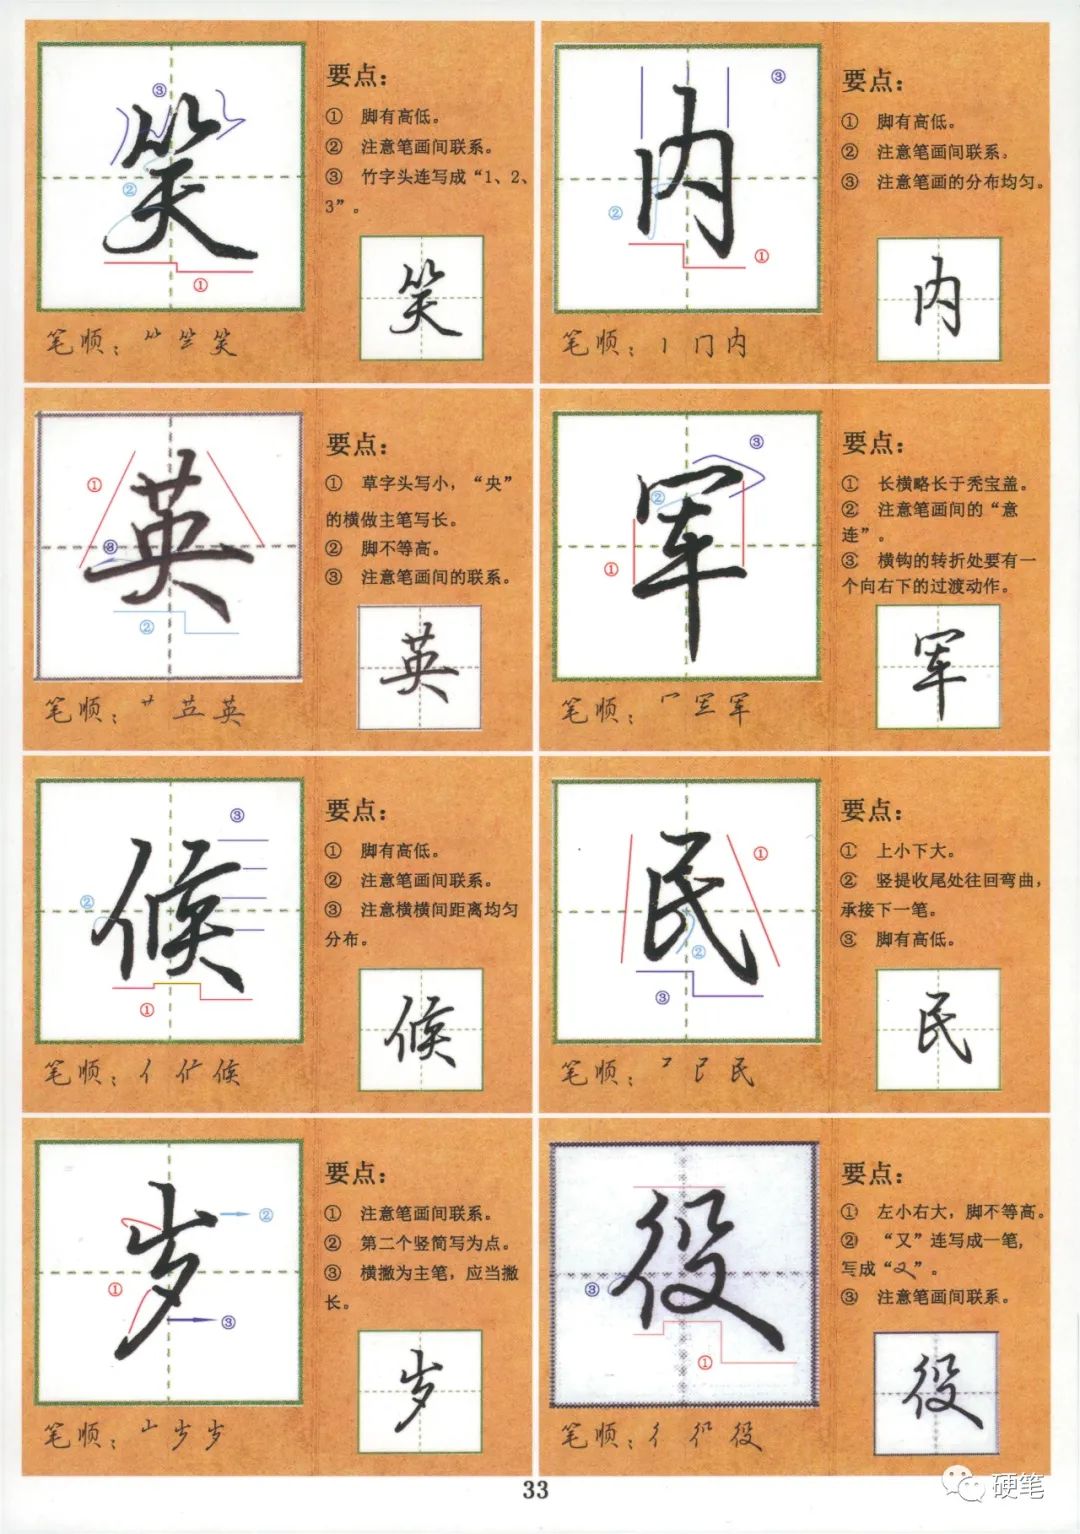 笑
要点：
① 脚有高低。
② 注意笔画间联系。
③ 竹字头连写成“1、2、
3”。
③
②
①
笑
笔顺：⺮ 笑
内
要点：
① 脚有高低。
② 注意笔画间联系。
③ 注意笔画的分布均匀。
③
②
①
内
笔顺：丨 冂 内
英
要点：
① 草字头写小，“央”
的横做主笔写长。
② 脚不等高。
③ 注意笔画间的联系。
①
③
②
英
笔顺：艹 英
军
要点：
① 长横略长于秃宝盖。
② 注意笔画间的“意
连”。
③ 横钩的转折处要有一
个向右下的过渡动作。
③
②
①
军
笔顺：冖 军
候
要点：
① 脚有高低。
② 注意笔画间联系。
③ 注意横横间距离均匀
分布。
③
②
①
候
笔顺：亻 候
民
要点：
① 上小下大。
② 竖提收尾处往回弯曲，
承接下一笔。
③ 脚有高低。
①
②
③
民
笔顺：民
岁
要点：
① 注意笔画间联系。
② 第二个竖简写为点。
③ 横撇为主笔，应当撇
长。
②
①
③
岁
笔顺：山 岁 岁
役
要点：
① 左小右大，脚不等高。
② “又”连写成一笔，
写成“又”。
③ 注意笔画间联系。
③
①
役
笔顺：彳 役
33
硬笔